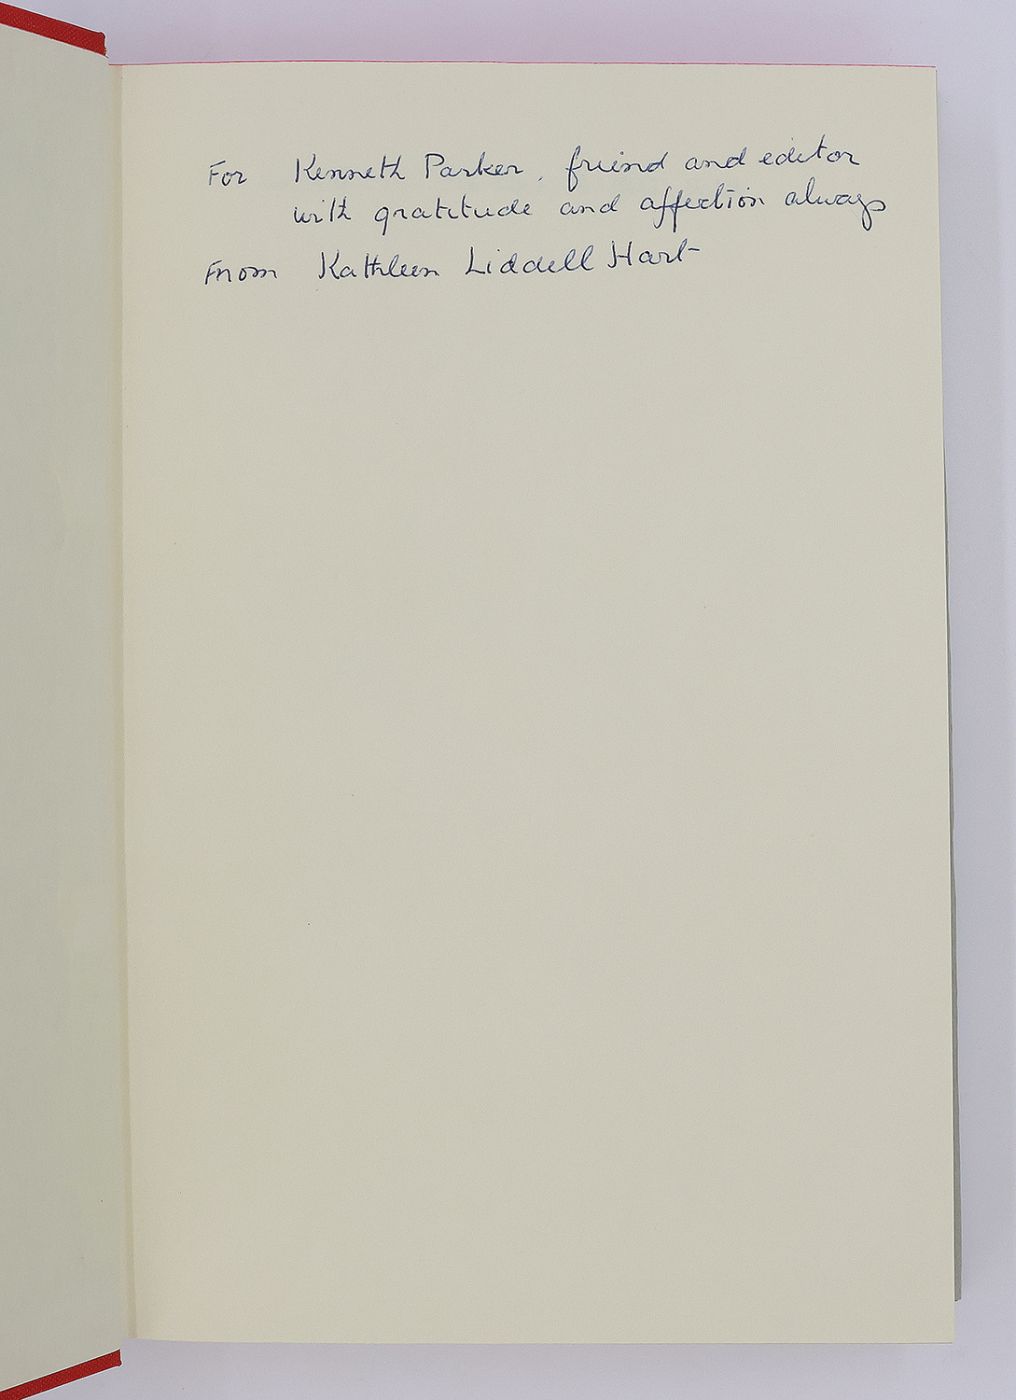 For Kenneth Parker, friend and editor
with gratitude and affection always
From Kathleen Liddell Hart